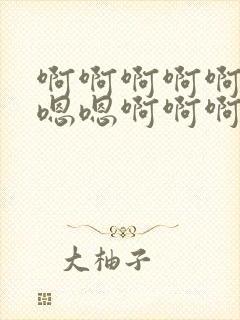 啊啊啊啊啊
嗯嗯啊啊啊
大柚子